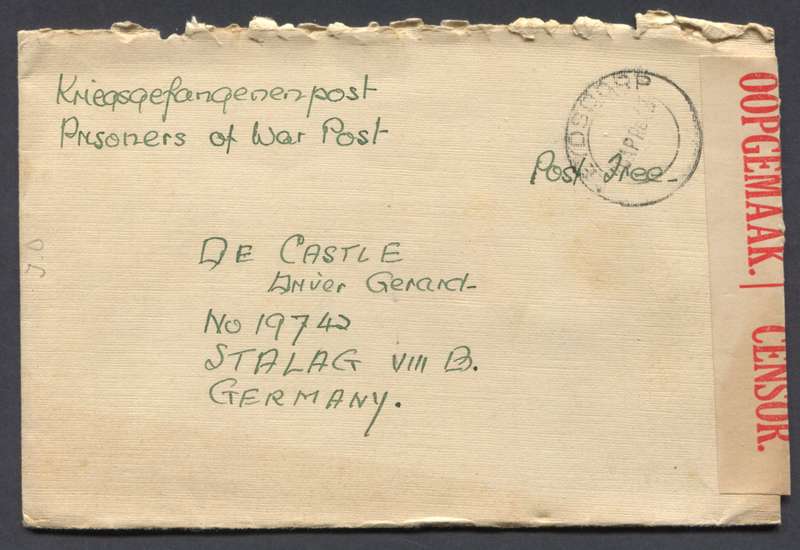 Kriegsgefangenenpost
Prisoners of War Post
Post Free
DE CASTLE
Driver Gerard
No 19742
STALAG VIII B.
GERMANY.
OOPGEMAAK. | CENSOR.
J.D